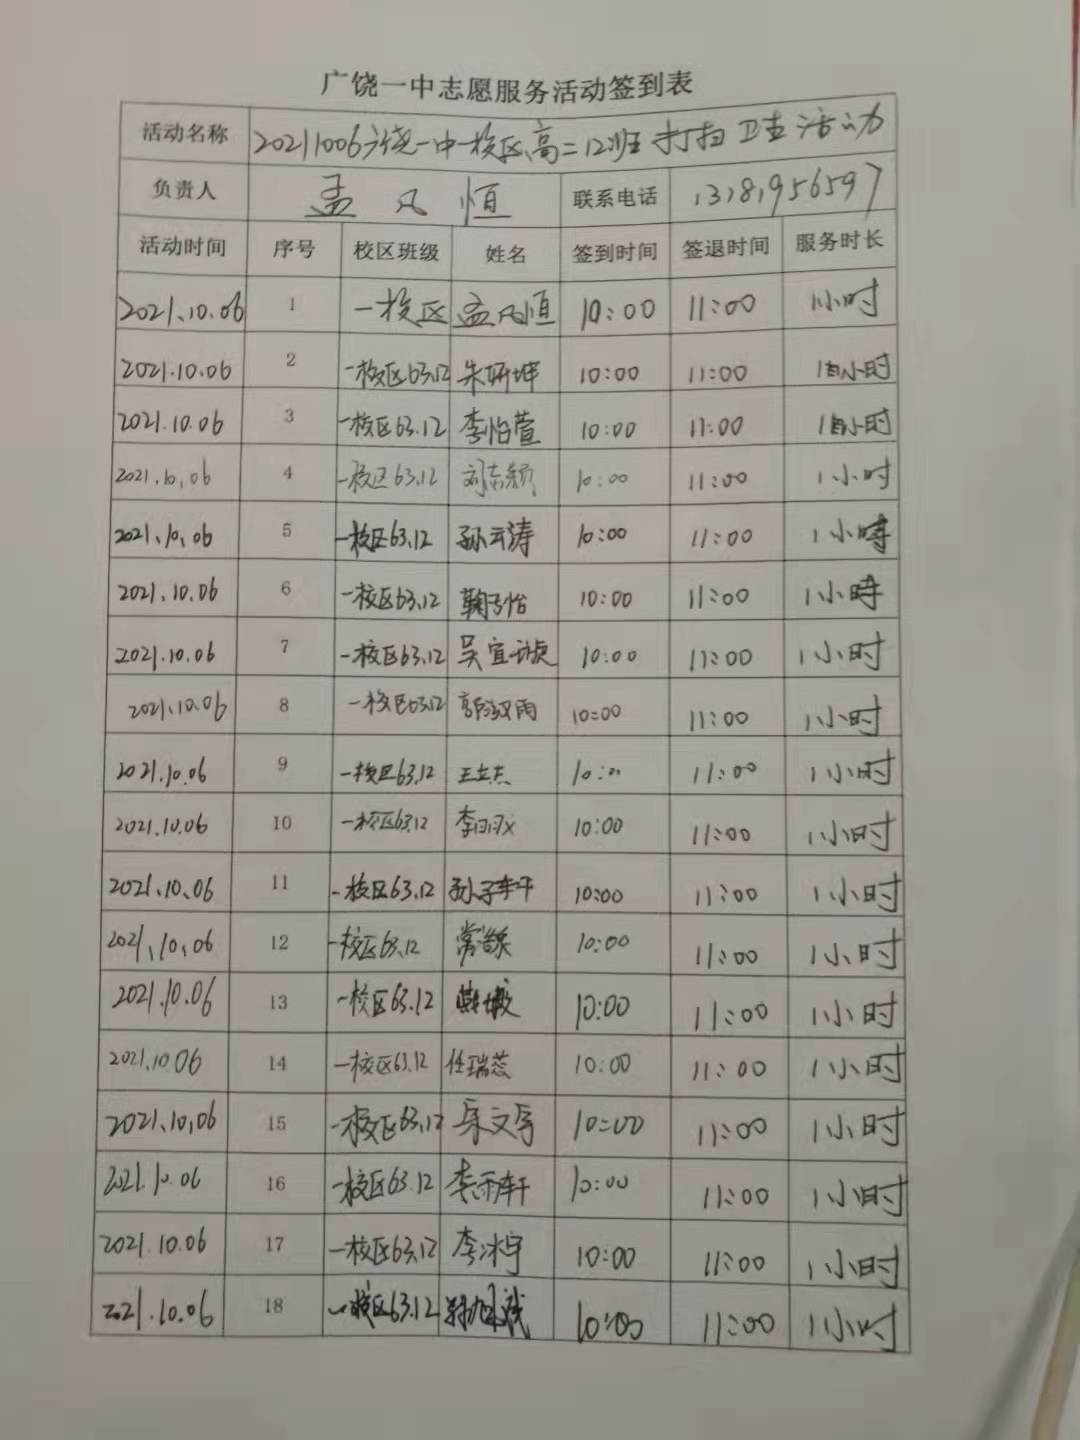 广饶一中志愿服务活动签到表
活动名称 20211006广饶一中一校区高二12班打扫卫生活动
负责人 孟凡恒 联系电话
活动时间 序号 校区班级 姓名 签到时间 签退时间 服务时长
2021.10.06 1 一校区 孟凡恒 10:00 11:00 1小时
2021.10.06 2 一校区63.12 朱妍坤 10:00 11:00 1小时
2021.10.06 3 一校区63.12 李怡萱 10:00 11:00 1小时
2021.10.06 4 一校区63.12 刘志颖 10:00 11:00 1小时
2021.10.06 5 一校区63.12 孙云涛 10:00 11:00 1小時
2021.10.06 6 一校区63.12 10:00 11:00 1小時
2021.10.06 7 一校区63.12 吴宜璇 10:00 11:00 1小时
2021.10.06 8 一校区63.12 10:00 11:00 1小时
2021.10.06 9 一校区63.12 王立杰 10:00 11:00 1小时
2021.10.06 10 一校区63.12 10:00 11:00 1小时
2021.10.06 11 一校区63.12 孙子轩 10:00 11:00 1小时
2021.10.06 12 一校区63.12 10:00 11:00 1小时
2021.10.06 13 一校区63.12 10:00 11:00 1小时
2021.10.06 14 一校区63.12 任瑞蕊 10:00 11:00 1小时
2021.10.06 15 一校区63.12 10:00 11:00 1小时
2021.10.06 16 一校区63.12 李雨轩 10:00 11:00 1小时
2021.10.06 17 一校区63.12 李冰宇 10:00 11:00 1小时
2021.10.06 18 一校区63.12 10:00 11:00 1小时